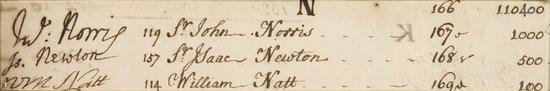 N 166 110400
Jn⁰: Norris 119 Sr. John Norris - - - 167 1000
Js. Newton 157 Sr. Isaac Newton - - - 168 500
Wm Natt 114 William Natt - - - 169 100